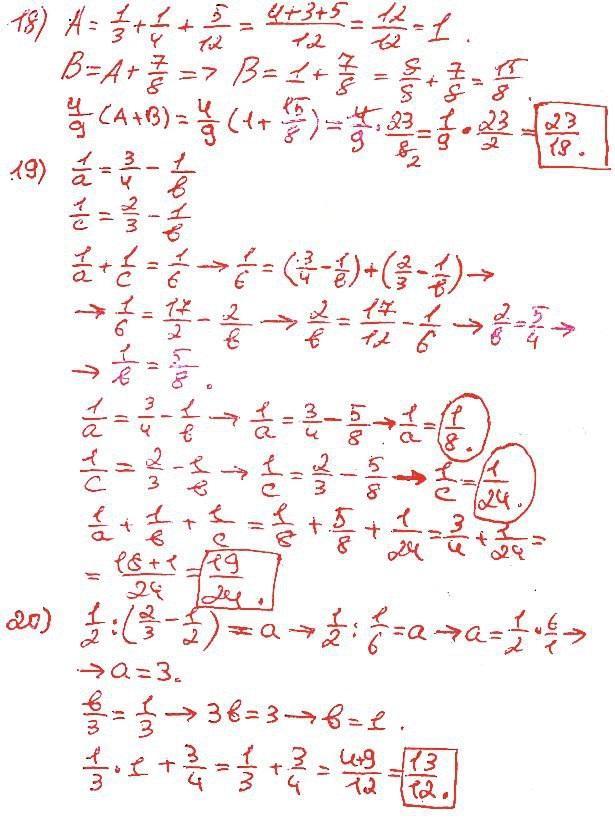 18) A = 1/3 + 1/4 + 5/12 = (4+3+5)/12 = 12/12 = 1.
B = A + 7/8 => B = 1 + 7/8 = 8/8 + 7/8 = 15/8.
4/9 (A+B) = 4/9 (1 + 15/8) = 4/9 · 23/8 2 = 1/9 · 23/2 = 23/18.
19) 1/a = 3/4 - 1/в
1/c = 2/3 - 1/в
1/a + 1/c = 1/6 → 1/6 = (3/4 - 1/в) + (2/3 - 1/в) →
→ 1/6 = 17/2 - 2/в → 2/в = 17/12 - 1/6 → 2/в = 5/4 →
→ 1/в = 5/8.
1/a = 3/4 - 1/в → 1/a = 3/4 - 5/8 → 1/a = 1/8.
1/c = 2/3 - 1/в → 1/c = 2/3 - 5/8 → 1/c = 1/24.
1/a + 1/в + 1/c = 1/8 + 5/8 + 1/24 = 3/4 + 1/24 =
= (18+1)/24 = 19/24.
20) 1/2 : (2/3 - 1/2) = a → 1/2 : 1/6 = a → a = 1/2 · 6/1 →
→ a = 3.
в/3 = 1/3 → 3в = 3 → в = 1.
1/3 · 1 + 3/4 = 1/3 + 3/4 = (4+9)/12 = 13/12.